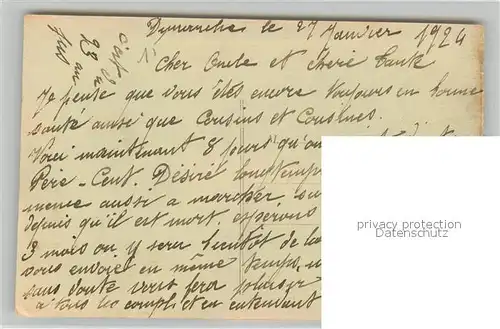 Dimanche le 27 Janvier 1924
Cher Oncle et chère Tante
Je pense que vous êtes encore toujours en bonne
santé ainsi que Cousins et Cousines.
Voici maintenant 8 jours qu'on
Père-Cent. Désiré longtemps
mence aussi a marcher, su
depuis qu'il est mort. esperons
3 mois on y sera bientôt de la
vous envoyer en même temps
sans doute vous fera plaisir
a tous les complet et en entendant
privacy protection
Datenschutz